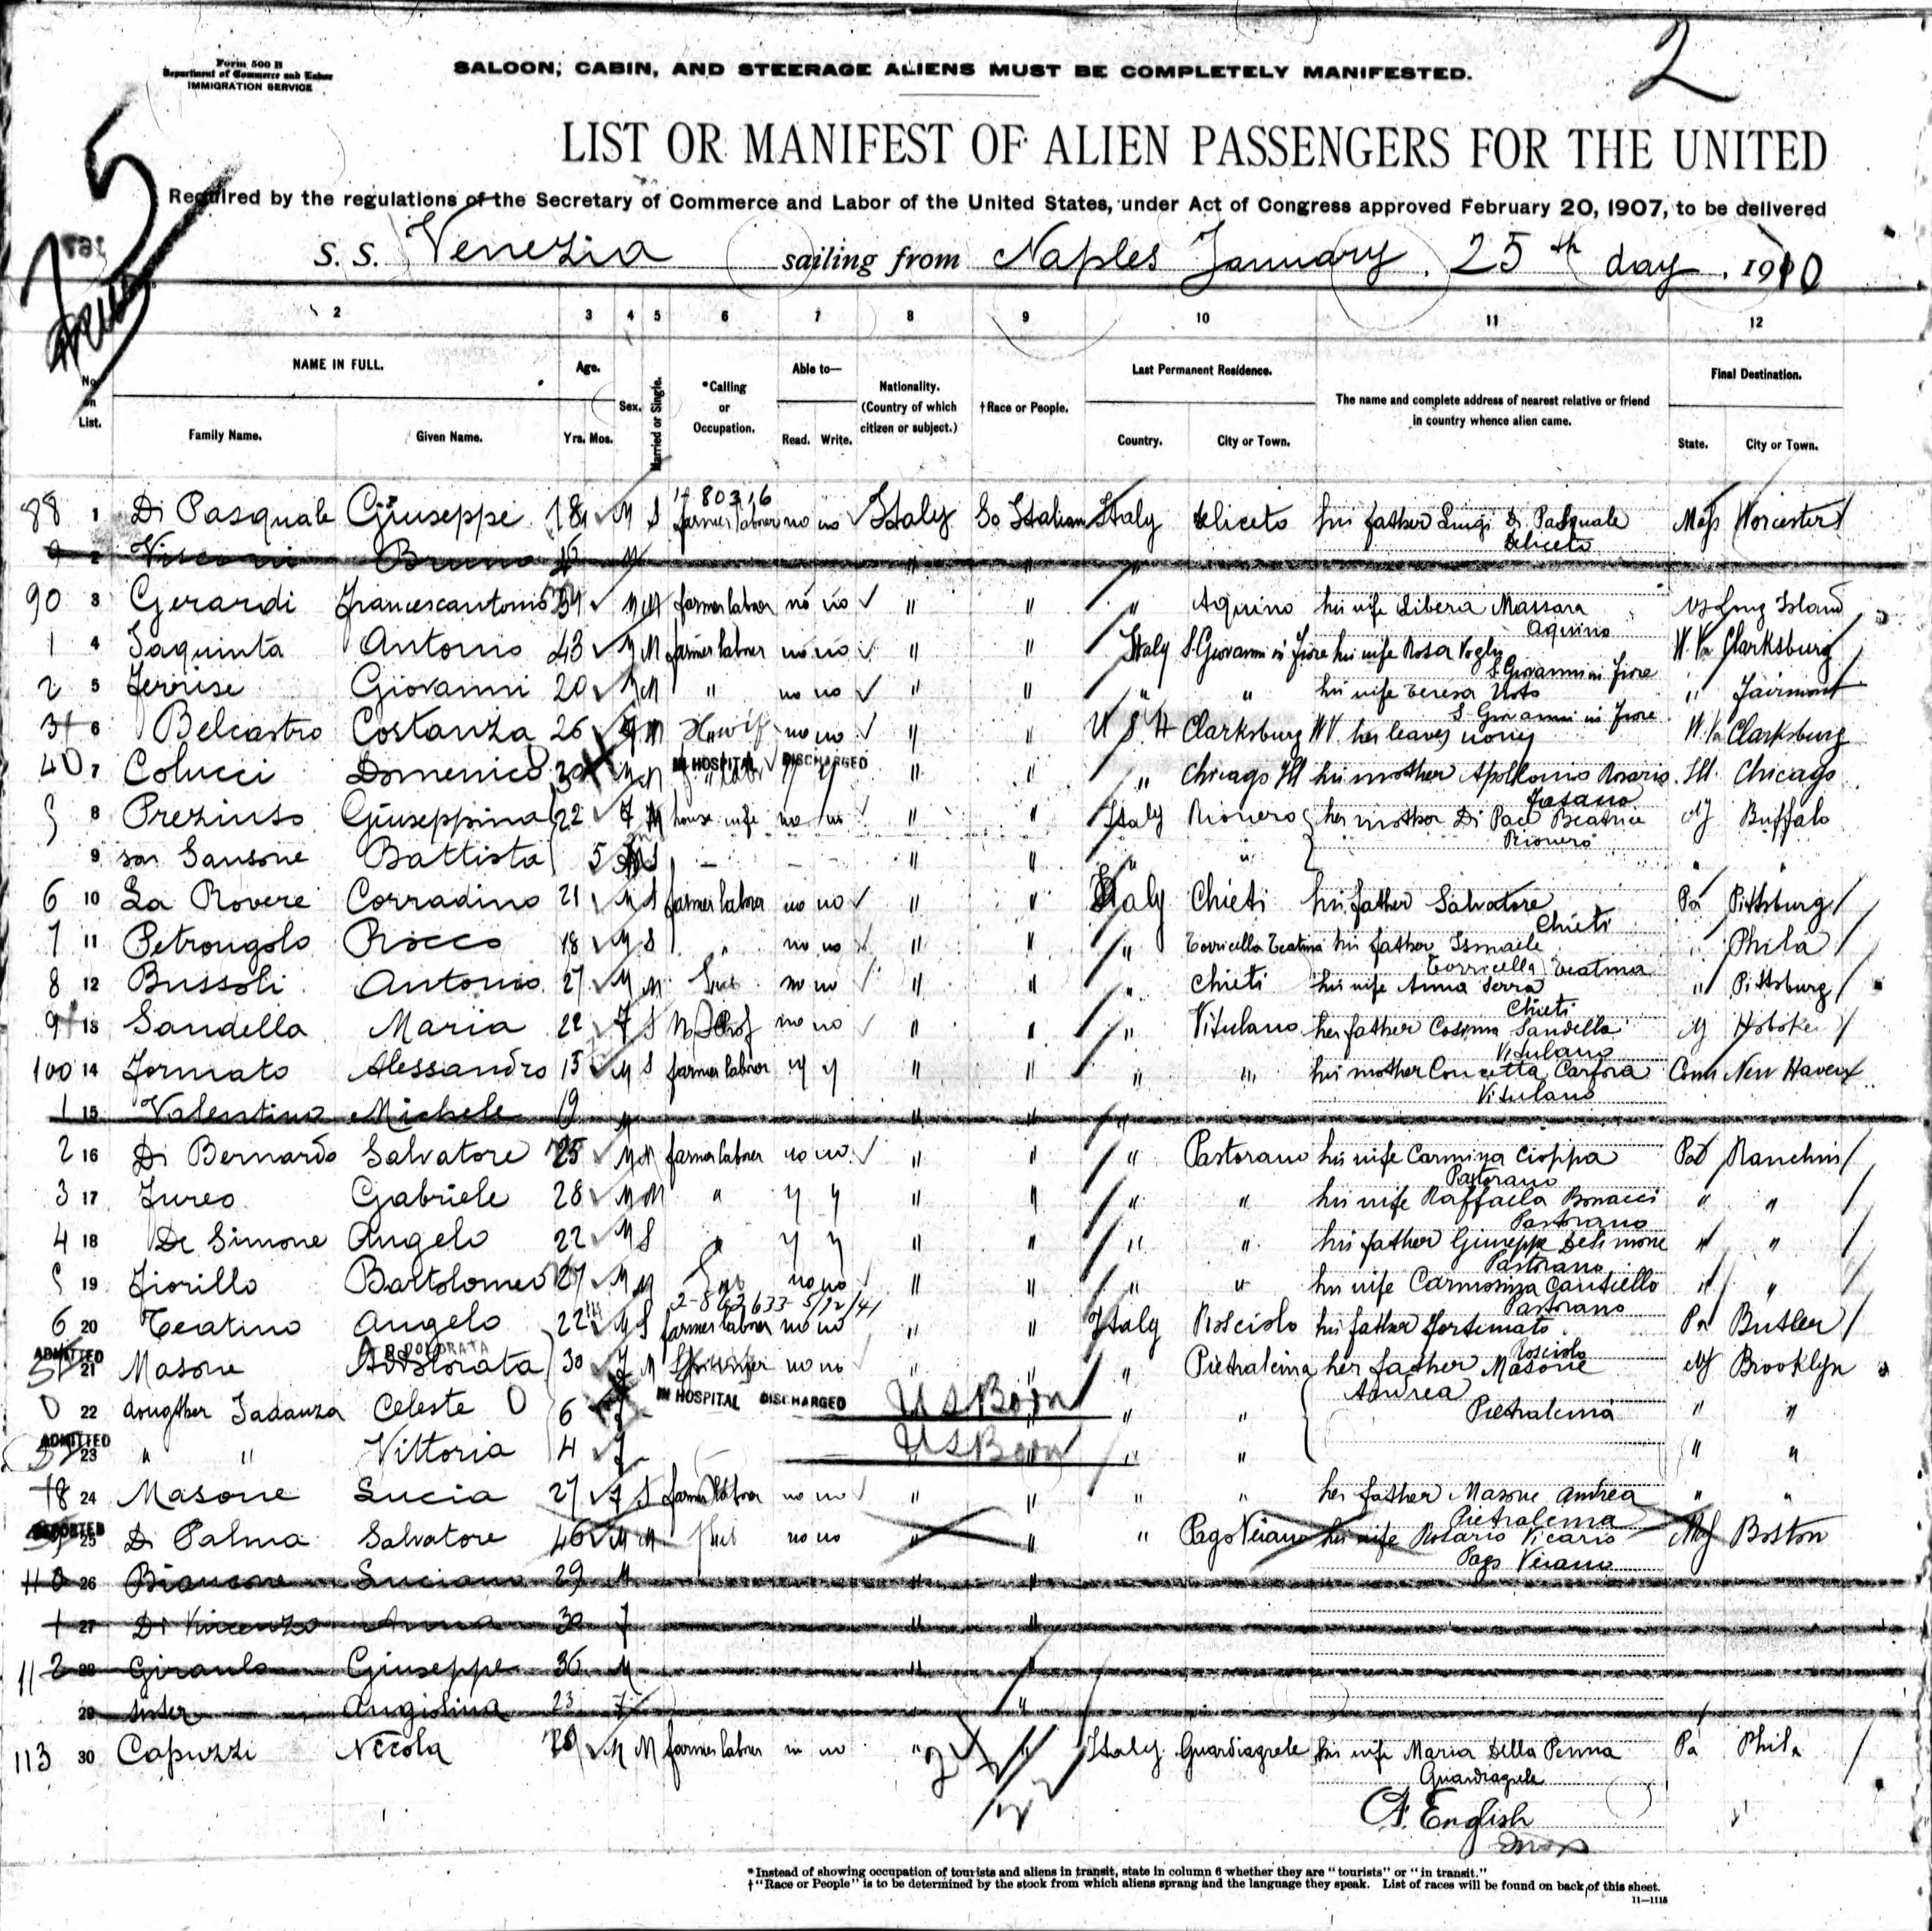 Form 500 B
Department of Commerce and Labor
IMMIGRATION SERVICE
SALOON, CABIN, AND STEERAGE ALIENS MUST BE COMPLETELY MANIFESTED.
2
5
LIST OR MANIFEST OF ALIEN PASSENGERS FOR THE UNITED
Required by the regulations of the Secretary of Commerce and Labor of the United States, under Act of Congress approved February 20, 1907, to be delivered
S. S. Venezia sailing from Naples January, 25th day, 1910
2 3 4 5 6 7 8 9 10 11 12
No. on List.
NAME IN FULL.
Family Name. Given Name.
Age.
Yrs. Mos.
Sex.
Married or Single.
*Calling or Occupation.
Able to—
Read. Write.
Nationality. (Country of which citizen or subject.)
†Race or People.
Last Permanent Residence.
Country. City or Town.
The name and complete address of nearest relative or friend in country whence alien came.
Final Destination.
State. City or Town.
88 1 Di Pasquale Giuseppe 18 M S farmer laborer no no Italy So Italian Italy Deliceto his father Luigi Di Pasquale Deliceto Mass Worcester
2 Bruno M " " "
90 3 Gerardi Francescantonio M M farmer labner no no " " " Aquino his wife Libera Massara Aquino Long Island
1 4 Iaquinta Antonio 43 M M farmer labner no no " " Italy S. Giovanni in Fiore his wife Rosa S. Giovanni in Fiore W. Va Clarksburg
2 5 Giovanni 20 M M " no no " " " " his wife Teresa S. Giovanni in Fiore " Fairmont
3 6 Belcastro Costanza 26 M no no " " U S A Clarksburg W V. her leaves W. Va Clarksburg
4 7 Colucci Domenico M M IN HOSPITAL DISCHARGED y y " " " Chicago Ill his mother Apollonio Rosaria Fasano Ill. Chicago
5 8 Prezioso Giuseppina 22 F M house wife no no " " Italy Rionero her mother Di Pace Beatrice Rionero Buffalo
9 son Sansone Battista 5 — — " " " " " "
6 10 La Rovere Corradino 21 M S farmer labner no no " " Italy Chieti his father Salvatore Chieti Pa Pittsburg
7 11 Petrongolo Rocco 18 M S " no no " " " Torricella Teatina his father Ismaele Torricella Teatina " Phila
8 12 Bussoli Antonio 27 M M no no " " " Chieti his wife Anna Serra Chieti " Pittsburg
9 13 Sandella Maria 22 F S no no " " " Vitulano her father Cosimo Sandella Vitulano Hoboken
100 14 Formato Alessandro 15 M S farmer labner y y " " " " his mother Concetta Carfora Vitulano Conn New Haven
1 15 Valentino Michele 19 M " " "
2 16 Di Bernardo Salvatore 25 M M farmer labner no no " " " Pastorano his wife Carmina Cioppa Pastorano Pa
3 17 Fureo Gabriele 28 M M " y y " " " " his wife Raffaela Bonacci Pastorano " "
4 18 De Simone Angelo 22 M S " y y " " " " his father Giuseppe Desimone Pastorano " "
5 19 Fiorillo Bartolomeo 27 M M no no " " " " his wife Carmosina Cantiello Pastorano " "
2-862633-5/12/41
6 20 Teatino Angelo 22 M S farmer labner no no " " Italy Rosciolo his father Fortunato Rosciolo Pa Butler
ADMITTED 21 Masone 30 F M no no " " " Pietralcina her father Masone Andrea Pietralcina NY Brooklyn
22 daughter Iadanza Celeste 6 F IN HOSPITAL DISCHARGED US Born " " " " "
ADMITTED 23 " " Vittoria 4 F US Born " " " " "
8 24 Masone Lucia 27 F S farmer labner no no " " " " her father Masone Andrea Pietralcina " "
DEPORTED 25 Di Palma Salvatore 46 M M no no " " " Pago Veiano his wife Rosario Vicario Pago Veiano Mass Boston
110 26 Biancone Luciano 29 M " "
1 27 Di Vincenzo Anna 30 F " "
112 28 Giuseppe 36 M " "
29 sister Angiolina 23 F "
113 30 Capuzzi Nicola M M farmer labner no no " " Italy Guardiagrele his wife Maria Della Penna Guardiagrele Pa Phila
A. English
*Instead of showing occupation of tourists and aliens in transit, state in column 6 whether they are "tourists" or "in transit."
†"Race or People" is to be determined by the stock from which aliens sprang and the language they speak. List of races will be found on back of this sheet.
11—1115